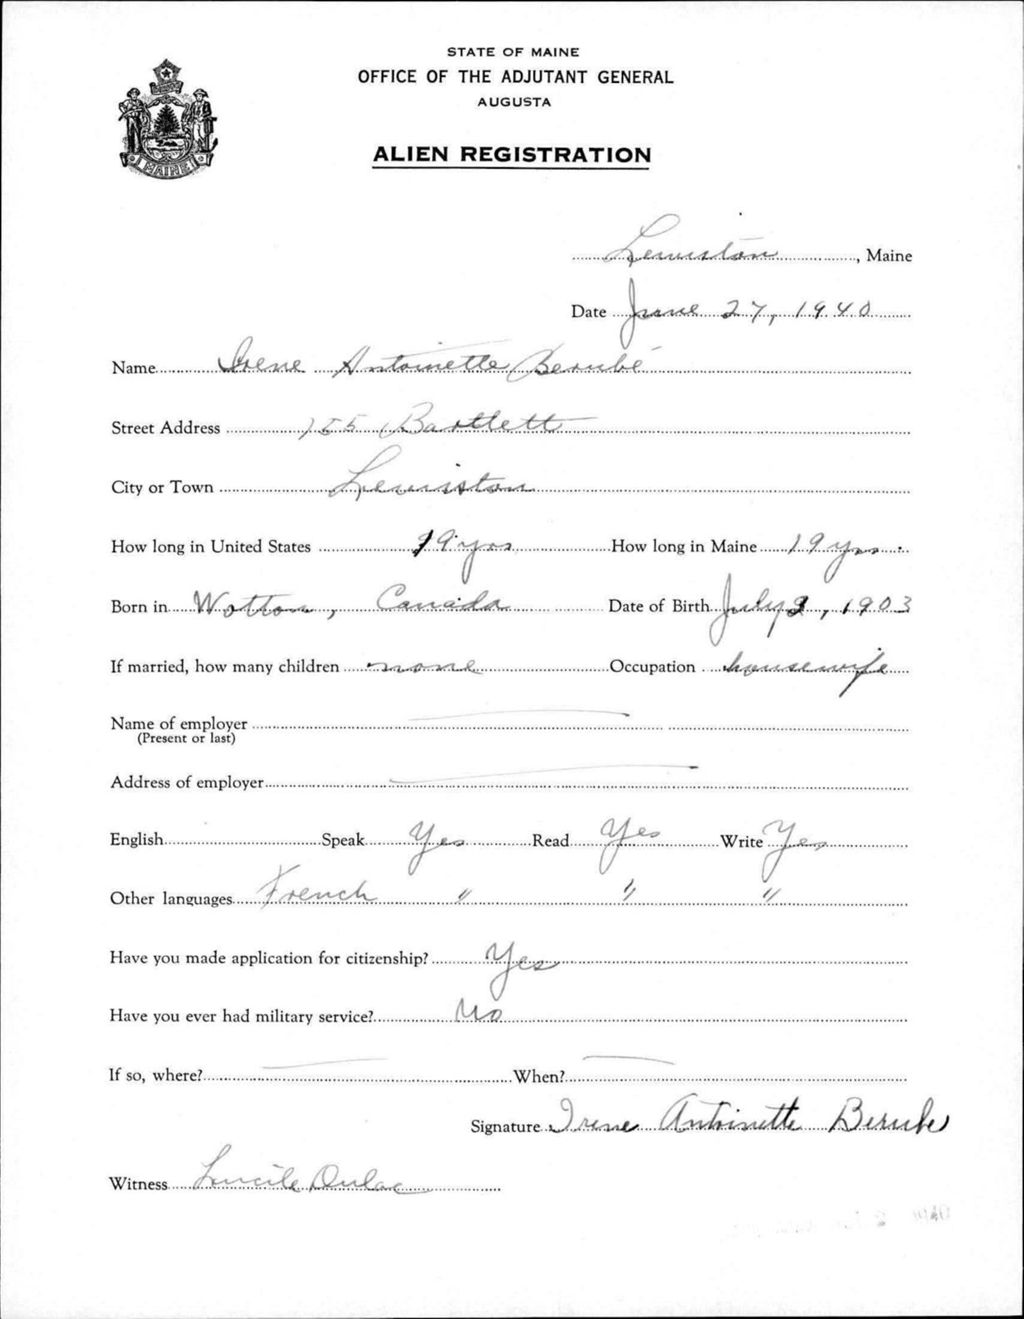 STATE OF MAINE
OFFICE OF THE ADJUTANT GENERAL
AUGUSTA
MAINE
ALIEN REGISTRATION
Lewiston, Maine
Date June 27, 1940
Name Irene Antoinette Berubé
Street Address 155 Bartlett
City or Town Lewiston
How long in United States 19 yrs How long in Maine 19 yrs.
Born in Wotton, Canada Date of Birth July, 1903
If married, how many children none Occupation housewife
Name of employer
(Present or last)
Address of employer
English Speak Yes Read Yes Write Yes
Other languages French " " "
Have you made application for citizenship? Yes
Have you ever had military service? No
If so, where? When?
Signature Irene Antoinette Berube
Witness Lucile Dulac